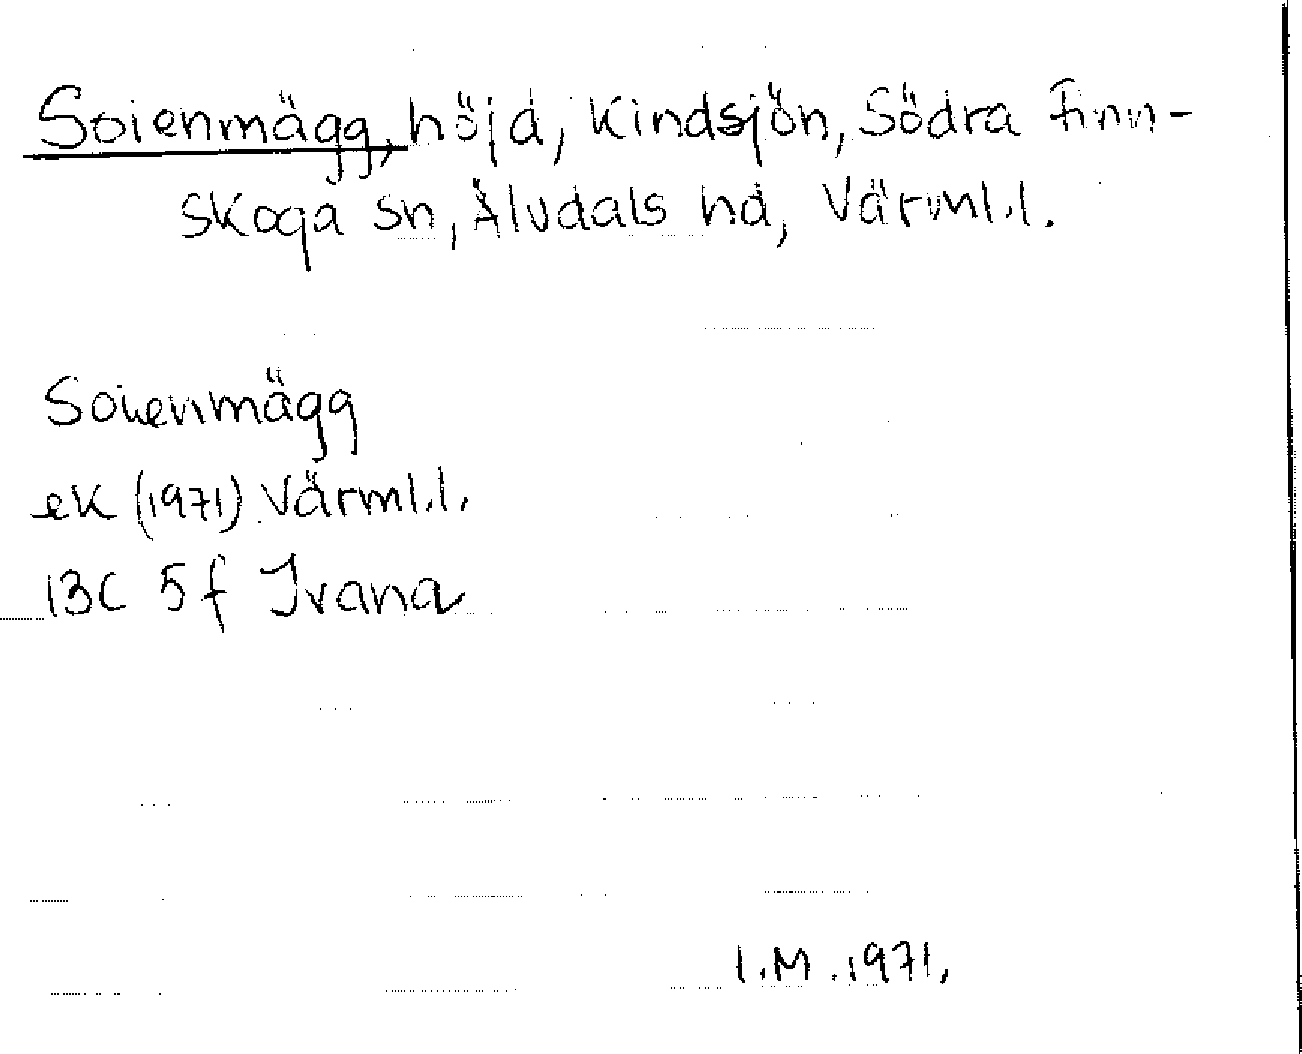 Soienmägg, höjd, Kindsjön, Södra Finn-
skoga sn, Älvdals hd, Värml.l.
Soienmägg
ek (1971) Värml.l.
13C 5f Ivana
I.M. 1971.